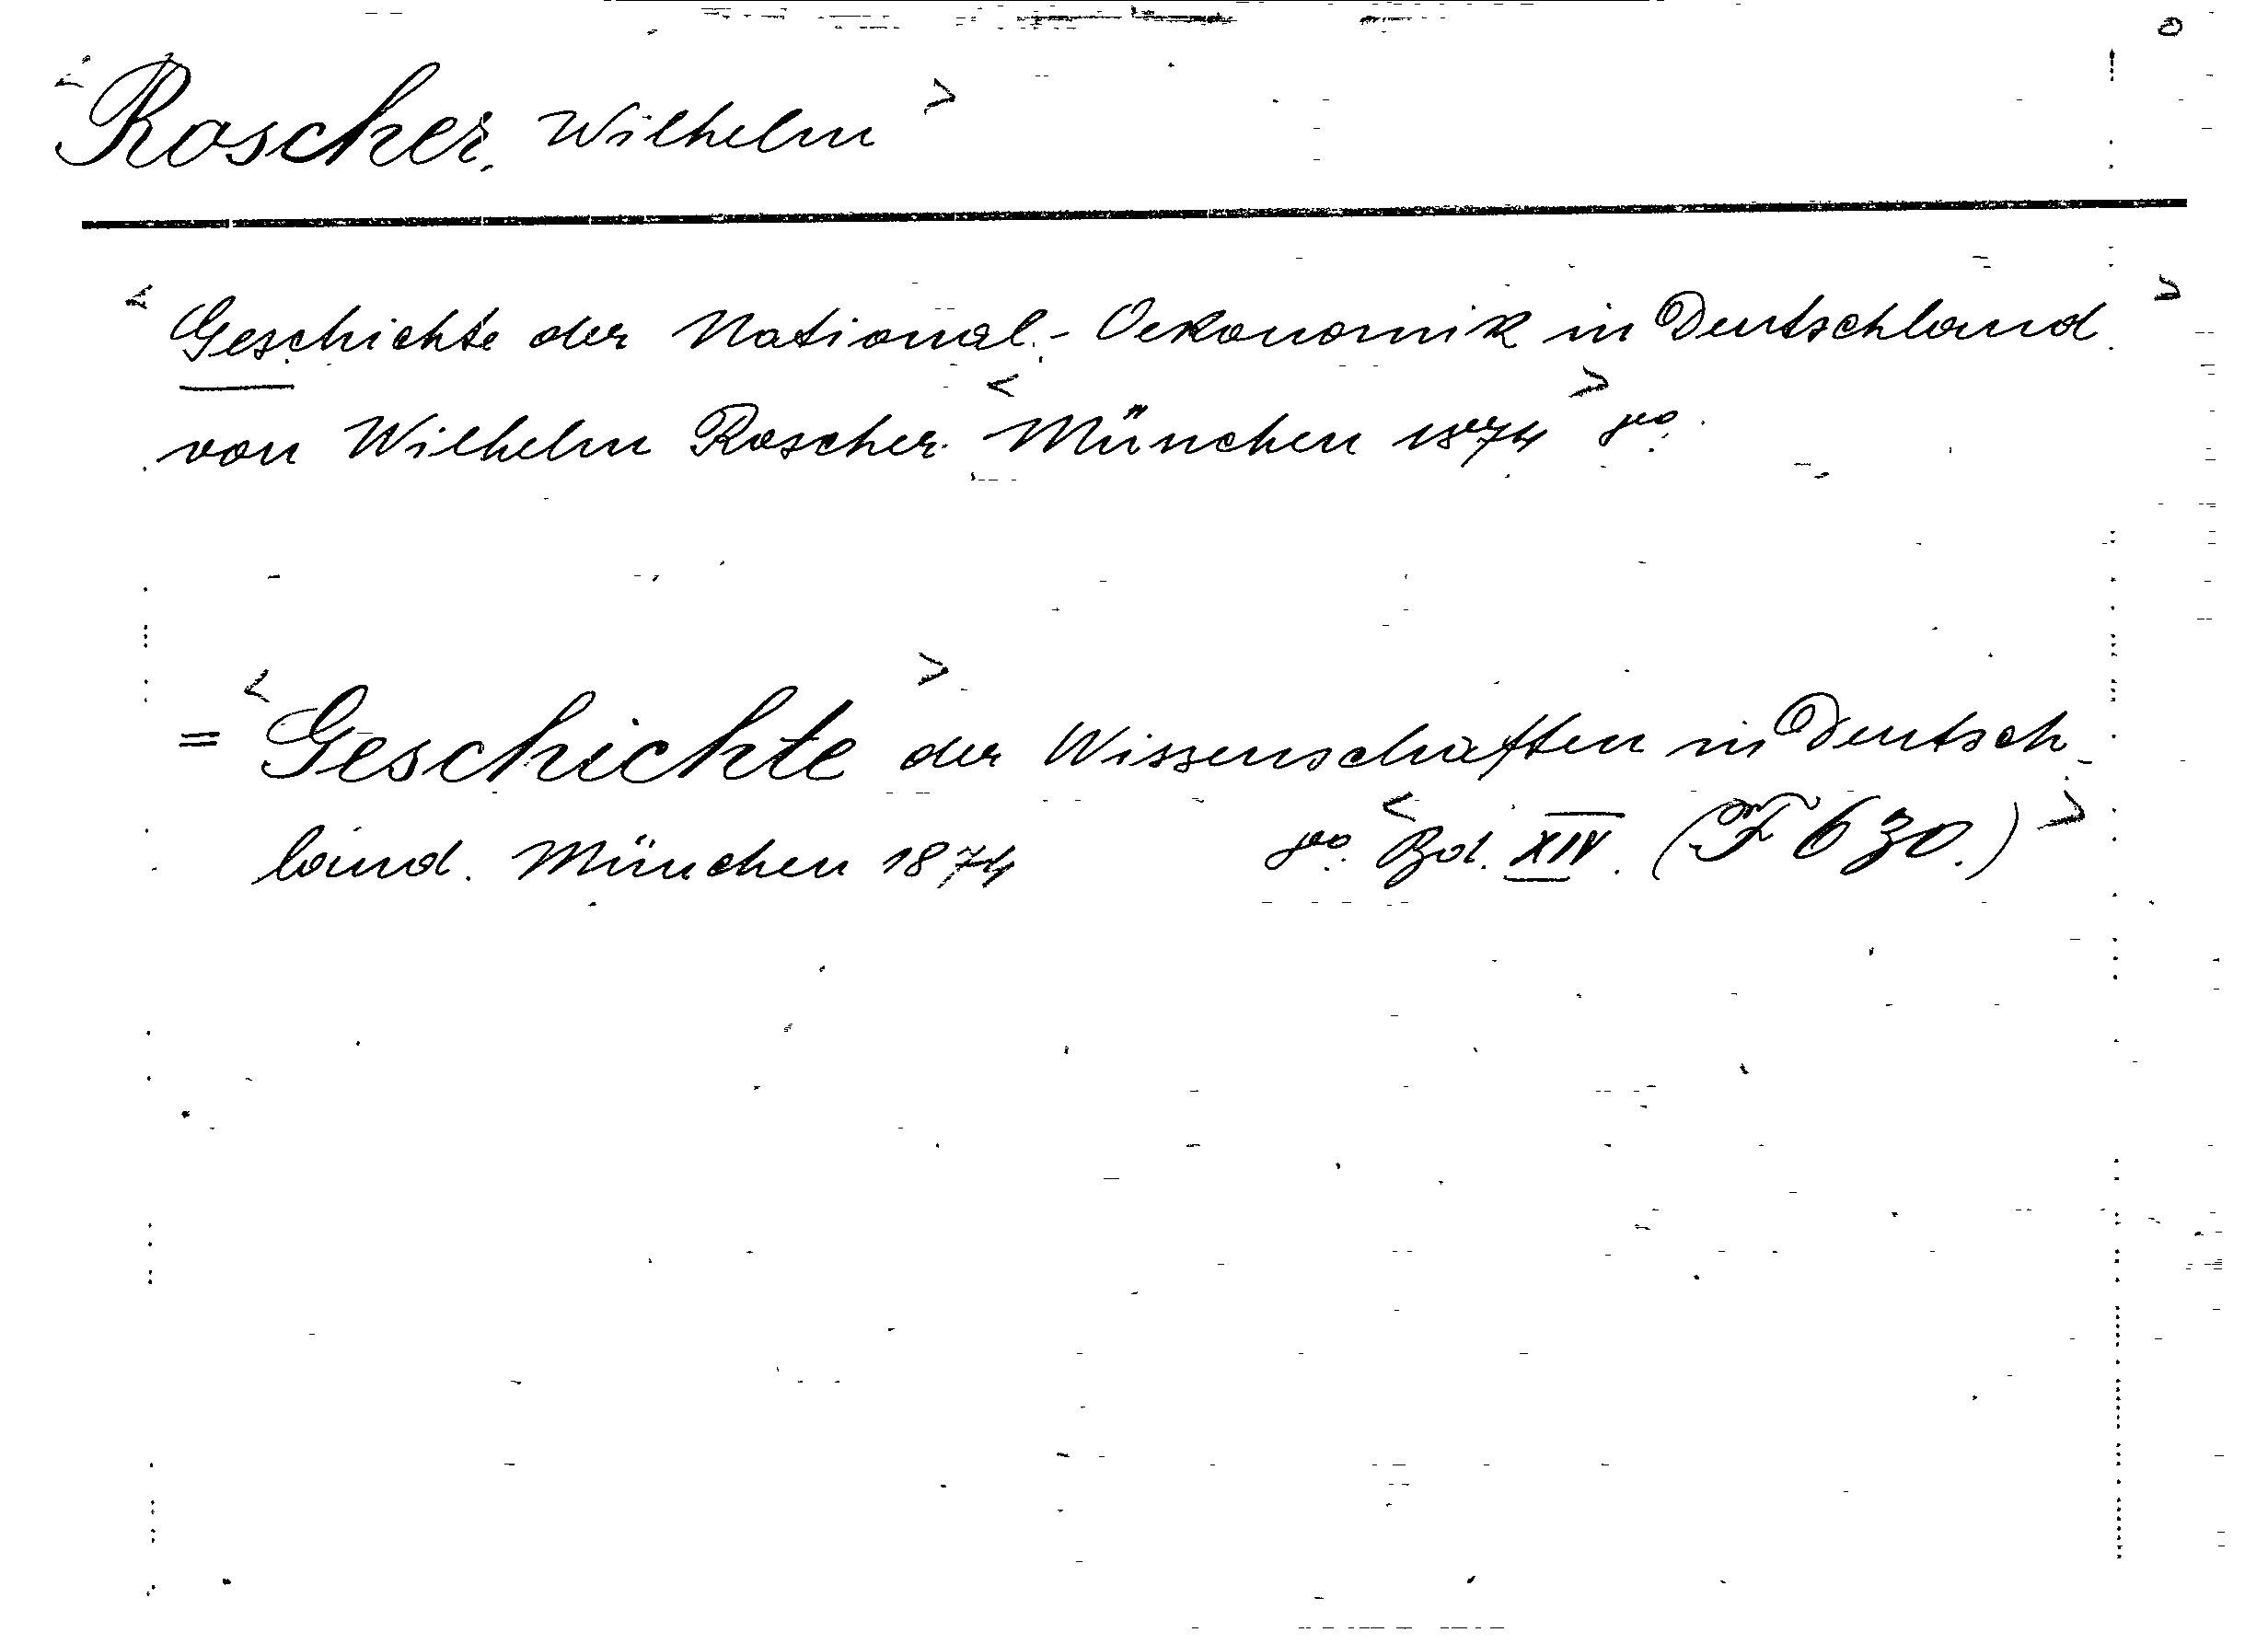 < Roscher, Wilhelm >
< Geschichte der National.- Oekonomik in Deutschland >
von Wilhelm Roscher. < München 1874 > 8°.
= < Geschichte > der Wissenschaften in Deutsch-
land. München 1874 8°. < Bd. XIV. (F 630.) >